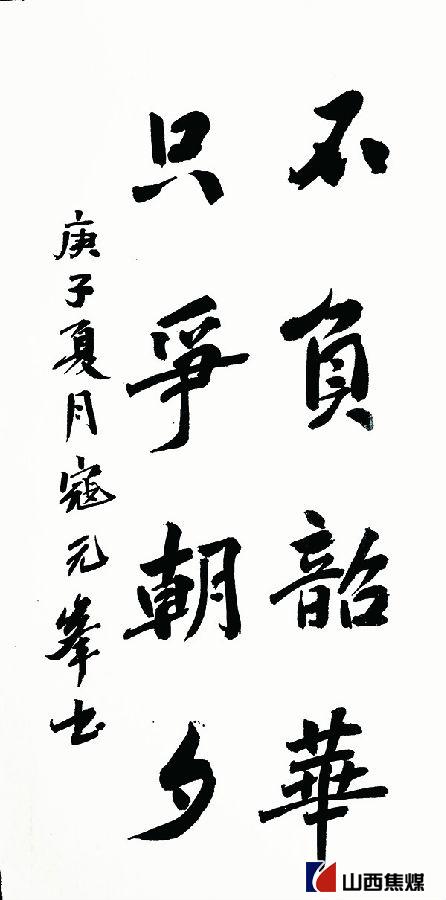 不負韶華
只爭朝夕
庚子夏月寇元峯书
山西焦煤